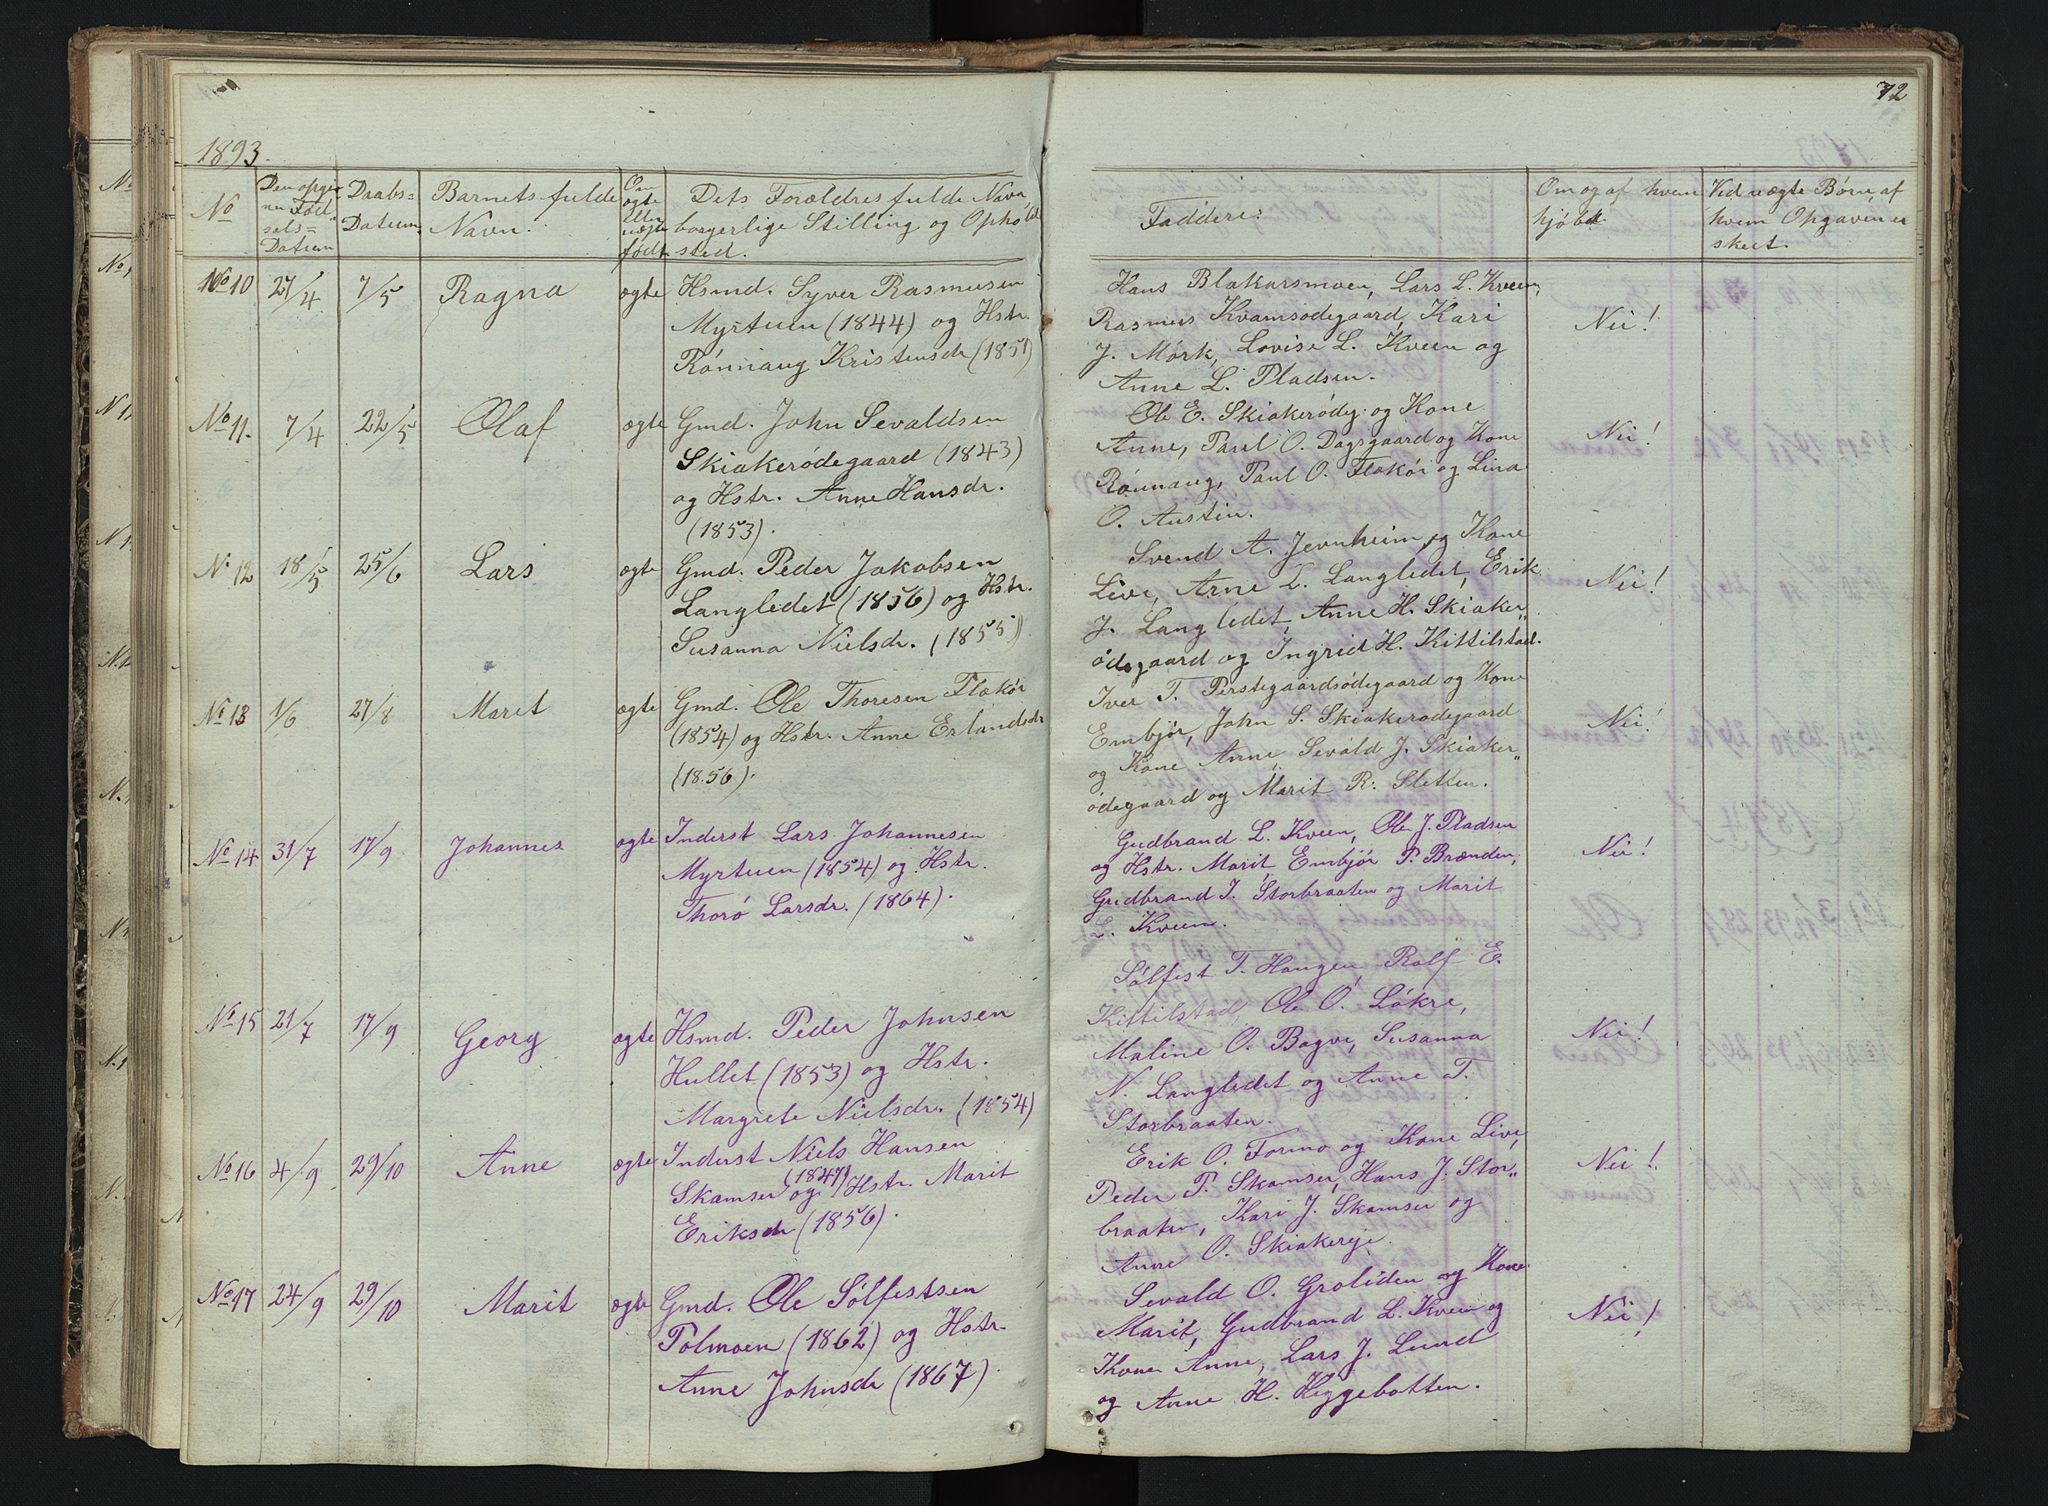 72
1893.
No
Den opgiv
ne Fød
sels=
Datum
Daabs=
Datum.
Barnets fulde
Navn.
Om
ægte
eller
uægte
født
Dets Forældres fulde Navn,
borgerlige Stilling og Ophold
sted.
Faddere:
Om og af hvem
hjóbt.
Ved uægte Børn, af
hvem Opgaven er
skeet.
No 10 27/4 7/5 Ragna ægte Hsmd. Syver Rasmusen
Myrtuen (1844) og Hstr.
Rónnaug Kristensdr (1851)
Hans Blakarsmoen, Lars L. Kveen,
Rasmus Kvamsødegaard, Kari
J. Mórk, Lovise L. Kveen og
Anne L. Pladsen.
Nei!
No 11. 7/4 22/5 Olaf ægte Gmd. John Sevaldsen
Skiakerødegaard (1843)
og Hstr. Anne Hansdr.
(1853).
Ole E. Skiakerødeg. og Kone
Anne, Paul O. Dagsgaard og Kone
Rónnaug, Paul O. Flækói og Lina
O. Austin.
Nei!
No 12 18/5 25/6 Lars ægte Gmd. Peder Jakobsen
Langledet (1856) og Hstr.
Susanna Nielsdr. (1855)
Svend A. Jevnheim og Kone
Live, Arne L. Langledet, Erik
J. Langledet, Anne H. Skiaker„
ødegaard og Ingrid H. Kittilstad.
Nei!
No 13 1/6 27/8 Marit ægte Gmd. Ole Thoresen Flækói
(1854) og Hstr. Anne Erlandsdr
(1856).
Iver T. Perstegaardsødegaard og Kone
Embjór, John S. Skiakerødegaard
og Kone Anne, Sevald J. Skiaker„
ødegaard og Marit R. Sletten.
Nei!
No 14 31/7 17/9 Johannes ægte Inderst Lars Johannesen
Myrtuen (1854) og Hstr.
Thoró Larsdr. (1864).
Gudbrand L. Kveen, Ole J. Pladsen
og Hstr. Marit, Embjór P. Brænden,
Gudbrand J. Storbraaten og Marit
L. Kveen.
Nei!
No 15 21/7 17/9 Georg ægte Hsmd. Peder Johnsen
Hullet (1853) og Hstr.
Margrete Nielsdr. (1854)
Sólfest T. Haugen, Rolf E.
Kittilstad, Ole O. Lókre,
Maline O. Bagve, Susanna
N. Langledet og Anne T.
Storbraaten.
Nei!
No 16 4/9 29/10 Anne ægte Inderst Niels Hansen
Skamser (1847) og Hstr. Marit
Eriksdr (1856).
Erik O. Formo og Kone Live,
Peder P. Skamser, Hans J. Stor„
braaten, Kari J. Skamser og
Anne O. Skiakereje.
Nei!
No 17 24/9 29/10 Marit ægte Gmd. Ole Sólfestsen
Polmoen (1862) og Hstr.
Anne Johnsdr (1867)
Sevald O. Groliden og Kone
Marit, Gudbrand L. Kveen og
Kone Anne, Lars J. Lund
og Anne H. Heggebotten.
Nei!